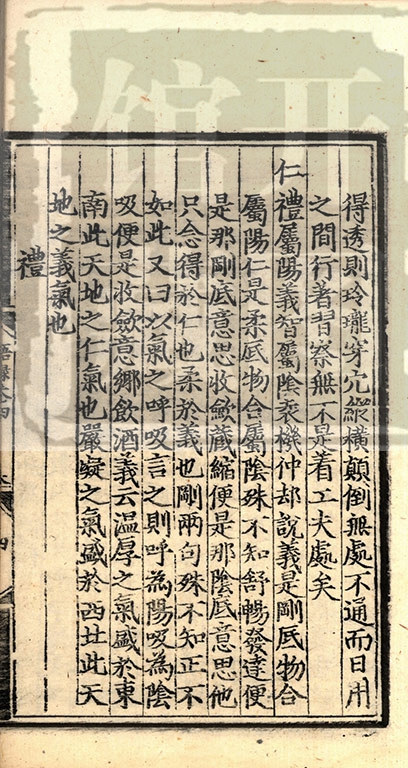 得透則玲瓏穿穴縱橫顛倒無處不通而日用
之間行著習察無不是着工夫處矣
仁禮屬陽義智屬陰袁機仲却說義是剛底物合
屬陽仁是柔底物合屬陰殊不知舒暢發達便
是那剛底意思收歛藏縮便是那陰底意思他
只念得於仁也柔於義也剛兩句殊不知正不
如此又曰以氣之呼吸言之則呼為陽吸為陰
吸便是收歛意鄉飲酒義云温厚之氣盛於東
南此天地之仁氣也嚴凝之氣盛於西北此天
地之義氣也
禮
語錄
四